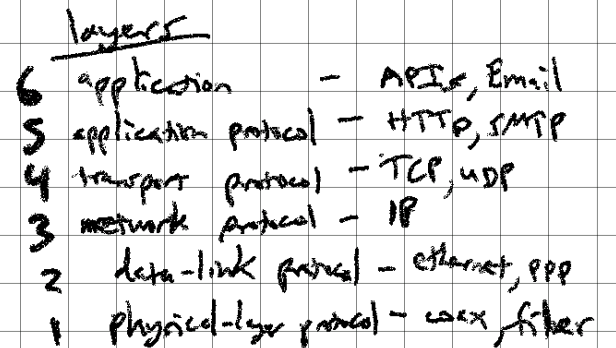 layers
6 application - APIs, Email
5 application protocol - HTTP, SMTP
4 transport protocol - TCP, UDP
3 network protocol - IP
2 data-link protocol - ethernet, PPP
1 physical-layer protocol - coax, fiber